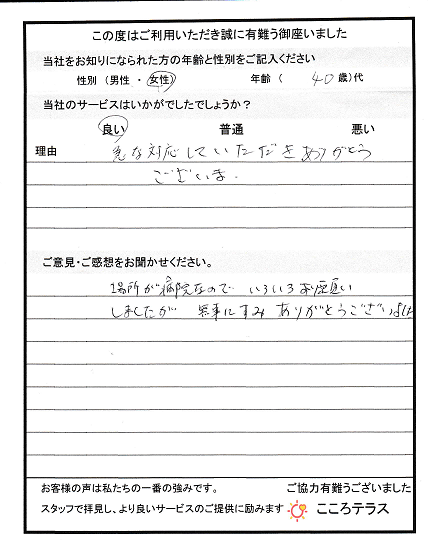 この度はご利用いただき誠に有難う御座いました
当社をお知りになられた方の年齢と性別をご記入ください
性別（男性 ・ 女性） 年齢（ 40 歳）代
当社のサービスはいかがでしたでしょうか？
良い 普通 悪い
理由 急な対応していただきありがとう
ございま.
ご意見・ご感想をお聞かせください。
場所が病院なので いろいろお願い
しましたが 無事にすみ ありがとうござい
お客様の声は私たちの一番の強みです。 ご協力有難うございました
スタッフで拝見し、より良いサービスのご提供に励みます こころテラス